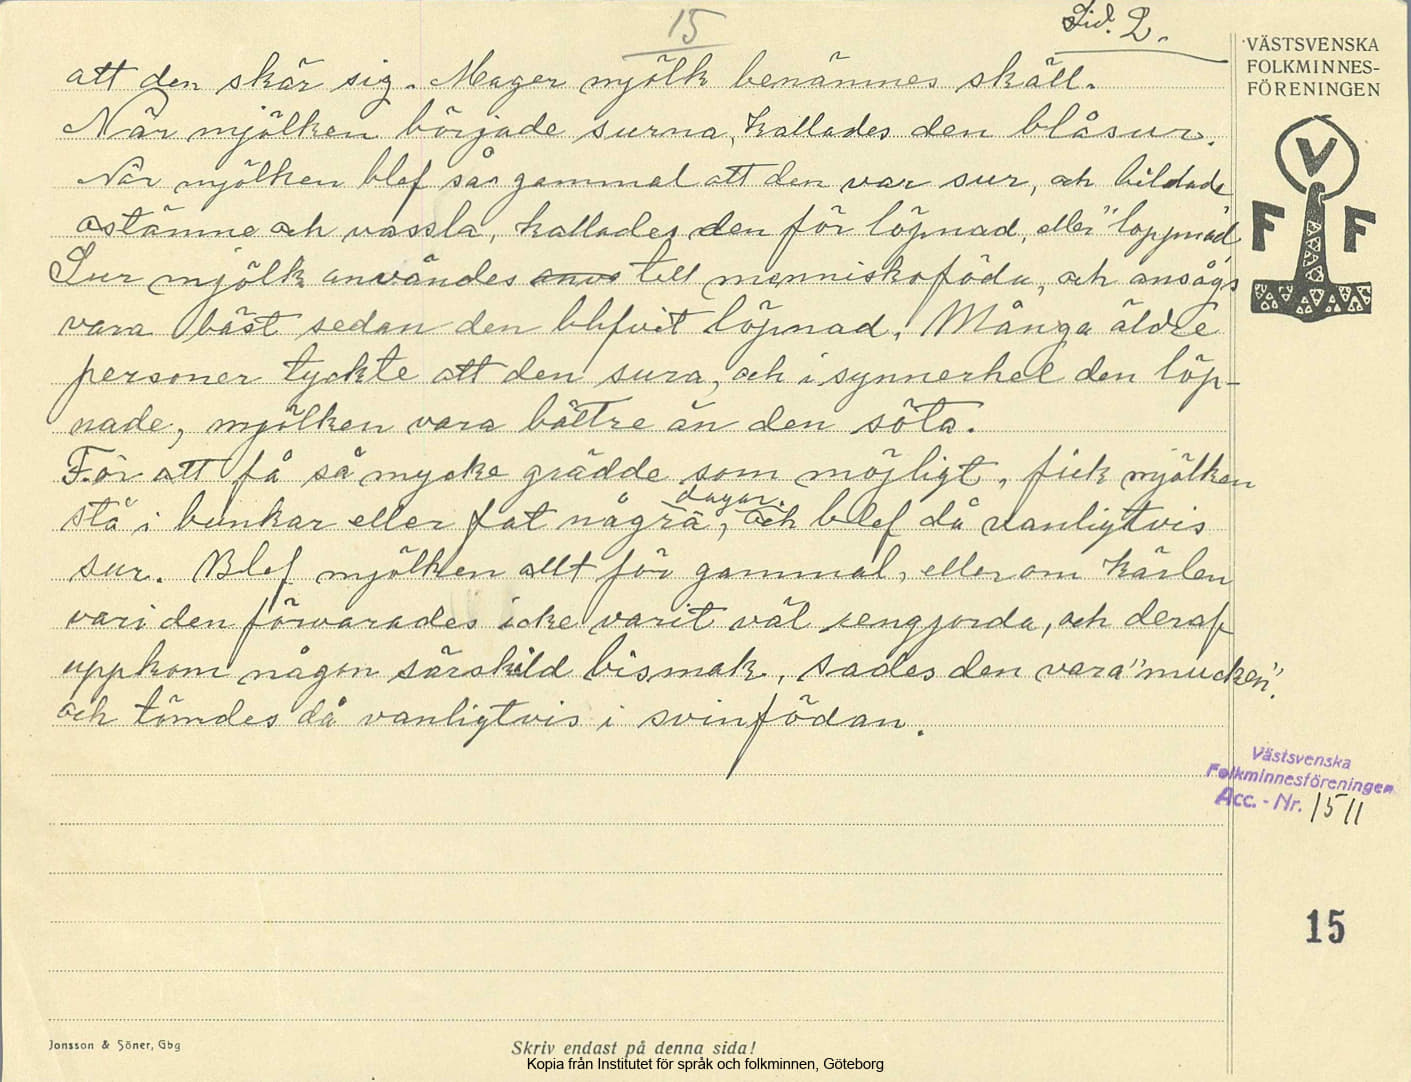 15
Sid. 2.
att den skär sig. Mager mjölk benämnes skäll.
När mjölken började surna, kallades den blåsur.
När mjölken blef så gammal att den var sur, och bildade
ostämne och vassla, kallades den för löpnad, eller "loppnad"
Sur mjölk användes till menniskoföda, och ansågs
vara bäst sedan den blifvit löpnad. Många äldre
personer tyckte att den sura, och i synnerhet den löp-
nade, mjölken vara bättre än den söta.
För att få så mycke grädde som möjligt, fick mjölken
dagar
stå i bunkar eller fat några, och blef då vanligtvis
sur. Blef mjölken allt för gammal, eller om kärlen
vari den förvarades icke varit väl rengjorda, och deraf
uppkom någon särskild bismak, sades den vara "mucken".
och tömdes då vanligtvis i svinfödan.
VÄSTSVENSKA
FOLKMINNES-
FÖRENINGEN
V
F F
Västsvenska
Folkminnesföreningen
Acc. - Nr. 1511
15
Jonsson & Söner, Gbg
Skriv endast på denna sida!
Kopia från Institutet för språk och folkminnen, Göteborg